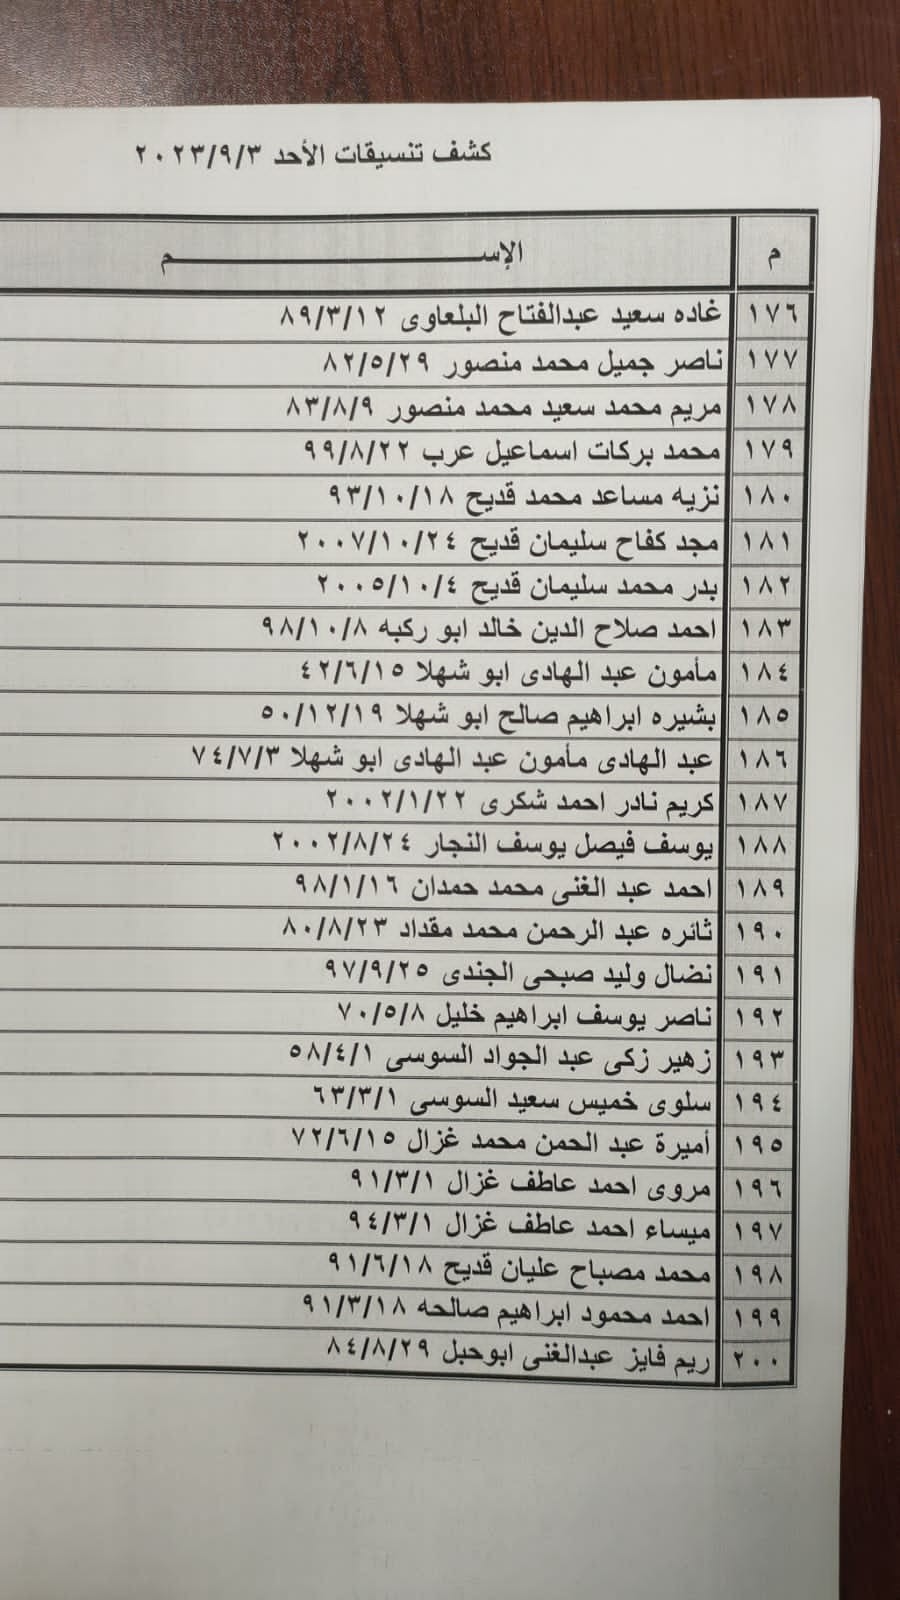 كشف تنسيقات الأحد ٢٠٢٣/٩/٣
م الإســـــــــــــم
١٧٦ غاده سعيد عبدالفتاح البلعاوى ٨٩/٣/١٢
١٧٧ ناصر جميل محمد منصور ٨٢/٥/٢٩
١٧٨ مريم محمد سعيد محمد منصور ٨٣/٨/٩
١٧٩ محمد بركات اسماعيل عرب ٩٩/٨/٢٢
١٨٠ نزيه مساعد محمد قديح ٩٣/١٠/١٨
١٨١ مجد كفاح سليمان قديح ٢٠٠٧/١٠/٢٤
١٨٢ بدر محمد سليمان قديح ٢٠٠٥/١٠/٤
١٨٣ احمد صلاح الدين خالد ابو ركبه ٩٨/١٠/٨
١٨٤ مأمون عبد الهادى ابو شهلا ٤٢/٦/١٥
١٨٥ بشيره ابراهيم صالح ابو شهلا ٥٠/١٢/١٩
١٨٦ عبد الهادى مأمون عبد الهادى ابو شهلا ٧٤/٧/٣
١٨٧ كريم نادر احمد شكرى ٢٠٠٢/١/٢٢
١٨٨ يوسف فيصل يوسف النجار ٢٠٠٢/٨/٢٤
١٨٩ احمد عبد الغنى محمد حمدان ٩٨/١/١٦
١٩٠ ثائره عبد الرحمن محمد مقداد ٨٠/٨/٢٣
١٩١ نضال وليد صبحى الجندى ٩٧/٩/٢٥
١٩٢ ناصر يوسف ابراهيم خليل ٧٠/٥/٨
١٩٣ زهير زكى عبد الجواد السوسى ٥٨/٤/١
١٩٤ سلوى خميس سعيد السوسى ٦٣/٣/١
١٩٥ أميرة عبد الحمن محمد غزال ٧٢/٦/١٥
١٩٦ مروى احمد عاطف غزال ٩١/٣/١
١٩٧ ميساء احمد عاطف غزال ٩٤/٣/١
١٩٨ محمد مصباح عليان قديح ٩١/٦/١٨
١٩٩ احمد محمود ابراهيم صالحه ٩١/٣/١٨
٢٠٠ ريم فايز عبدالغنى ابوحبل ٨٤/٨/٢٩